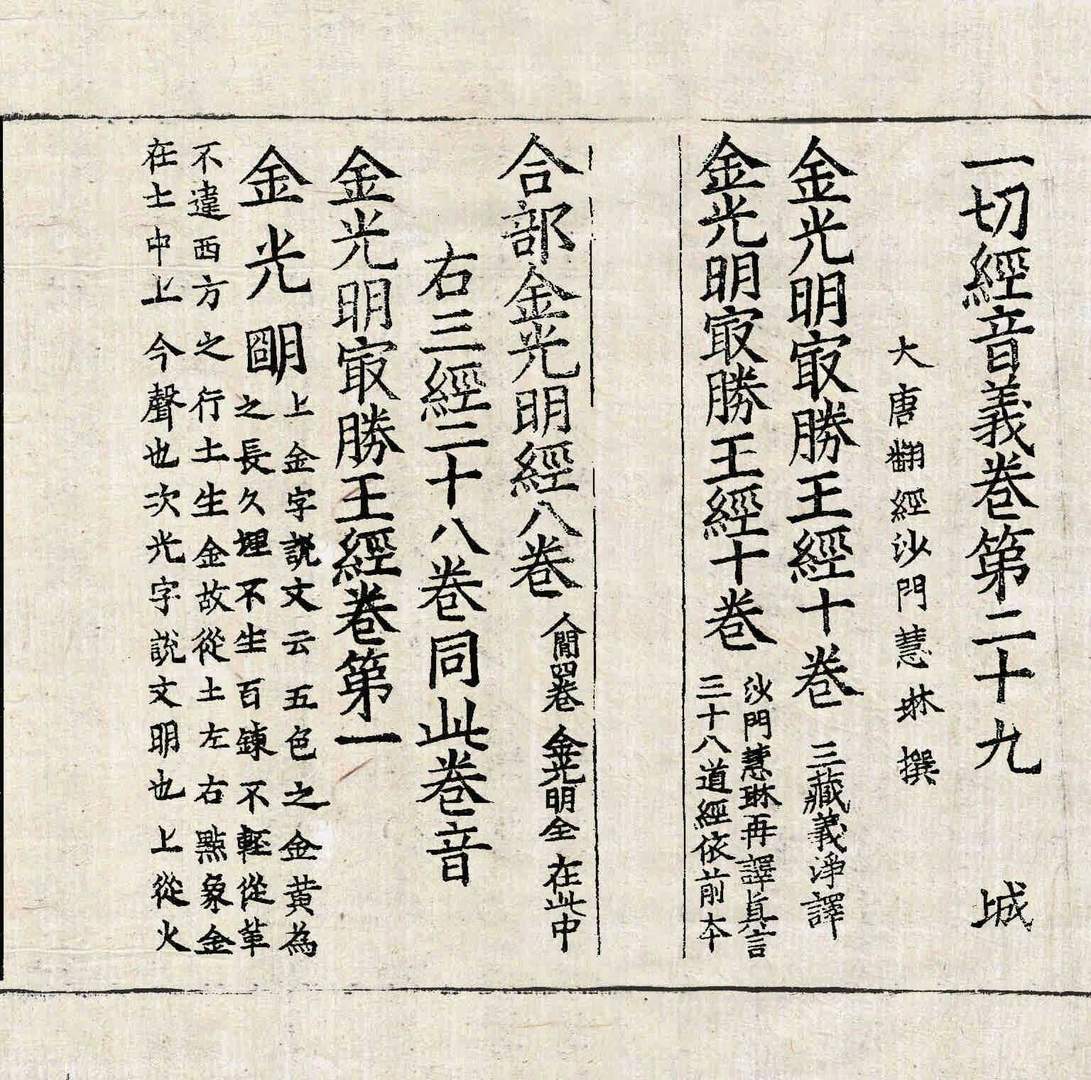 一切經音義卷第二十九　城
大唐翻經沙門慧琳撰
金光明㝡勝王經十卷　三藏義淨譯
金光明㝡勝王經十卷
沙門慧琳再譯眞言
三十八道經依前夲
合部金光明經八卷　人閒四卷　金光明全　在此中
右三經二十八卷同此卷音
金光明㝡勝王經卷第一
金光朙
上金字說文云五色之金黃為
之長久埋不生百鍊不輕從革
不違西方之行土生金故從土左右點象金
在土中上今聲也次光字說文明也上從火